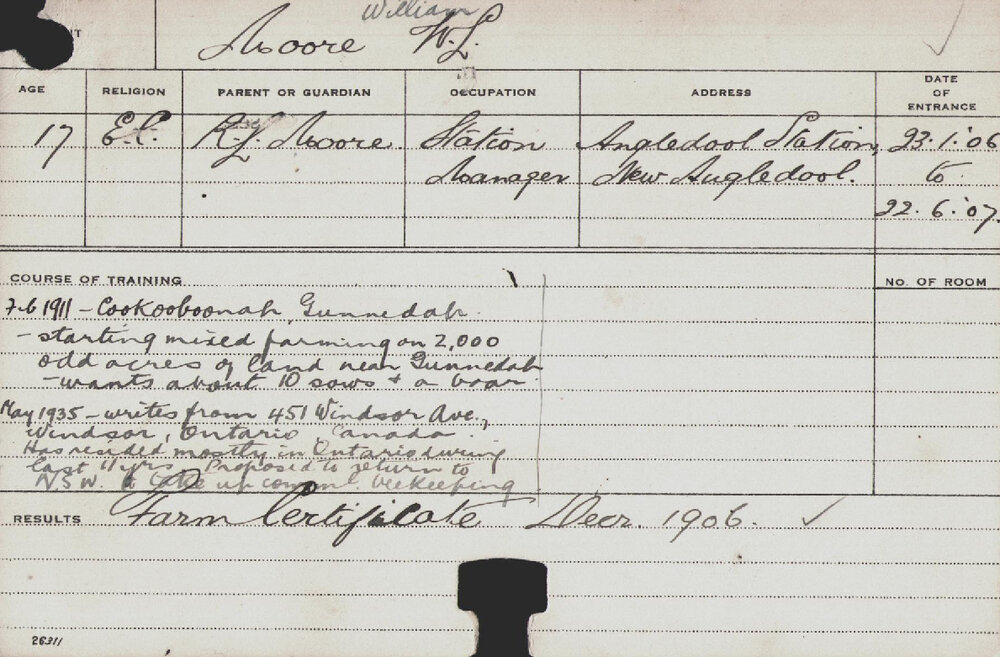 William
Moore W.L.
AGE RELIGION PARENT OR GUARDIAN OCCUPATION ADDRESS DATE OF ENTRANCE
17 E.C. R.L. Moore. Station Angledool Station, 23.1.06
Manager New Angledool. to
22.6.07.
COURSE OF TRAINING
No. OF ROOM
7.6 1911 – Cookooboonah, Gunnedah.
– starting mixed farming on 2,000
odd acres of land near Gunnedah
– wants about 10 sows & a boar.
May 1935 – writes from 451 Windsor Ave.,
Windsor, Ontario Canada.
Has resided mostly in Ontario during
last 11 yrs. Proposed to return to
N.S.W. & take up comml. beekeeping
RESULTS Farm Certificate Decr. 1906. ✓
26311